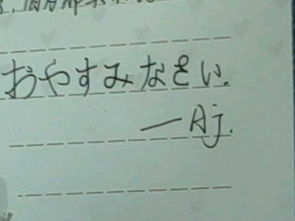 おやすみなさい.
—Aj.